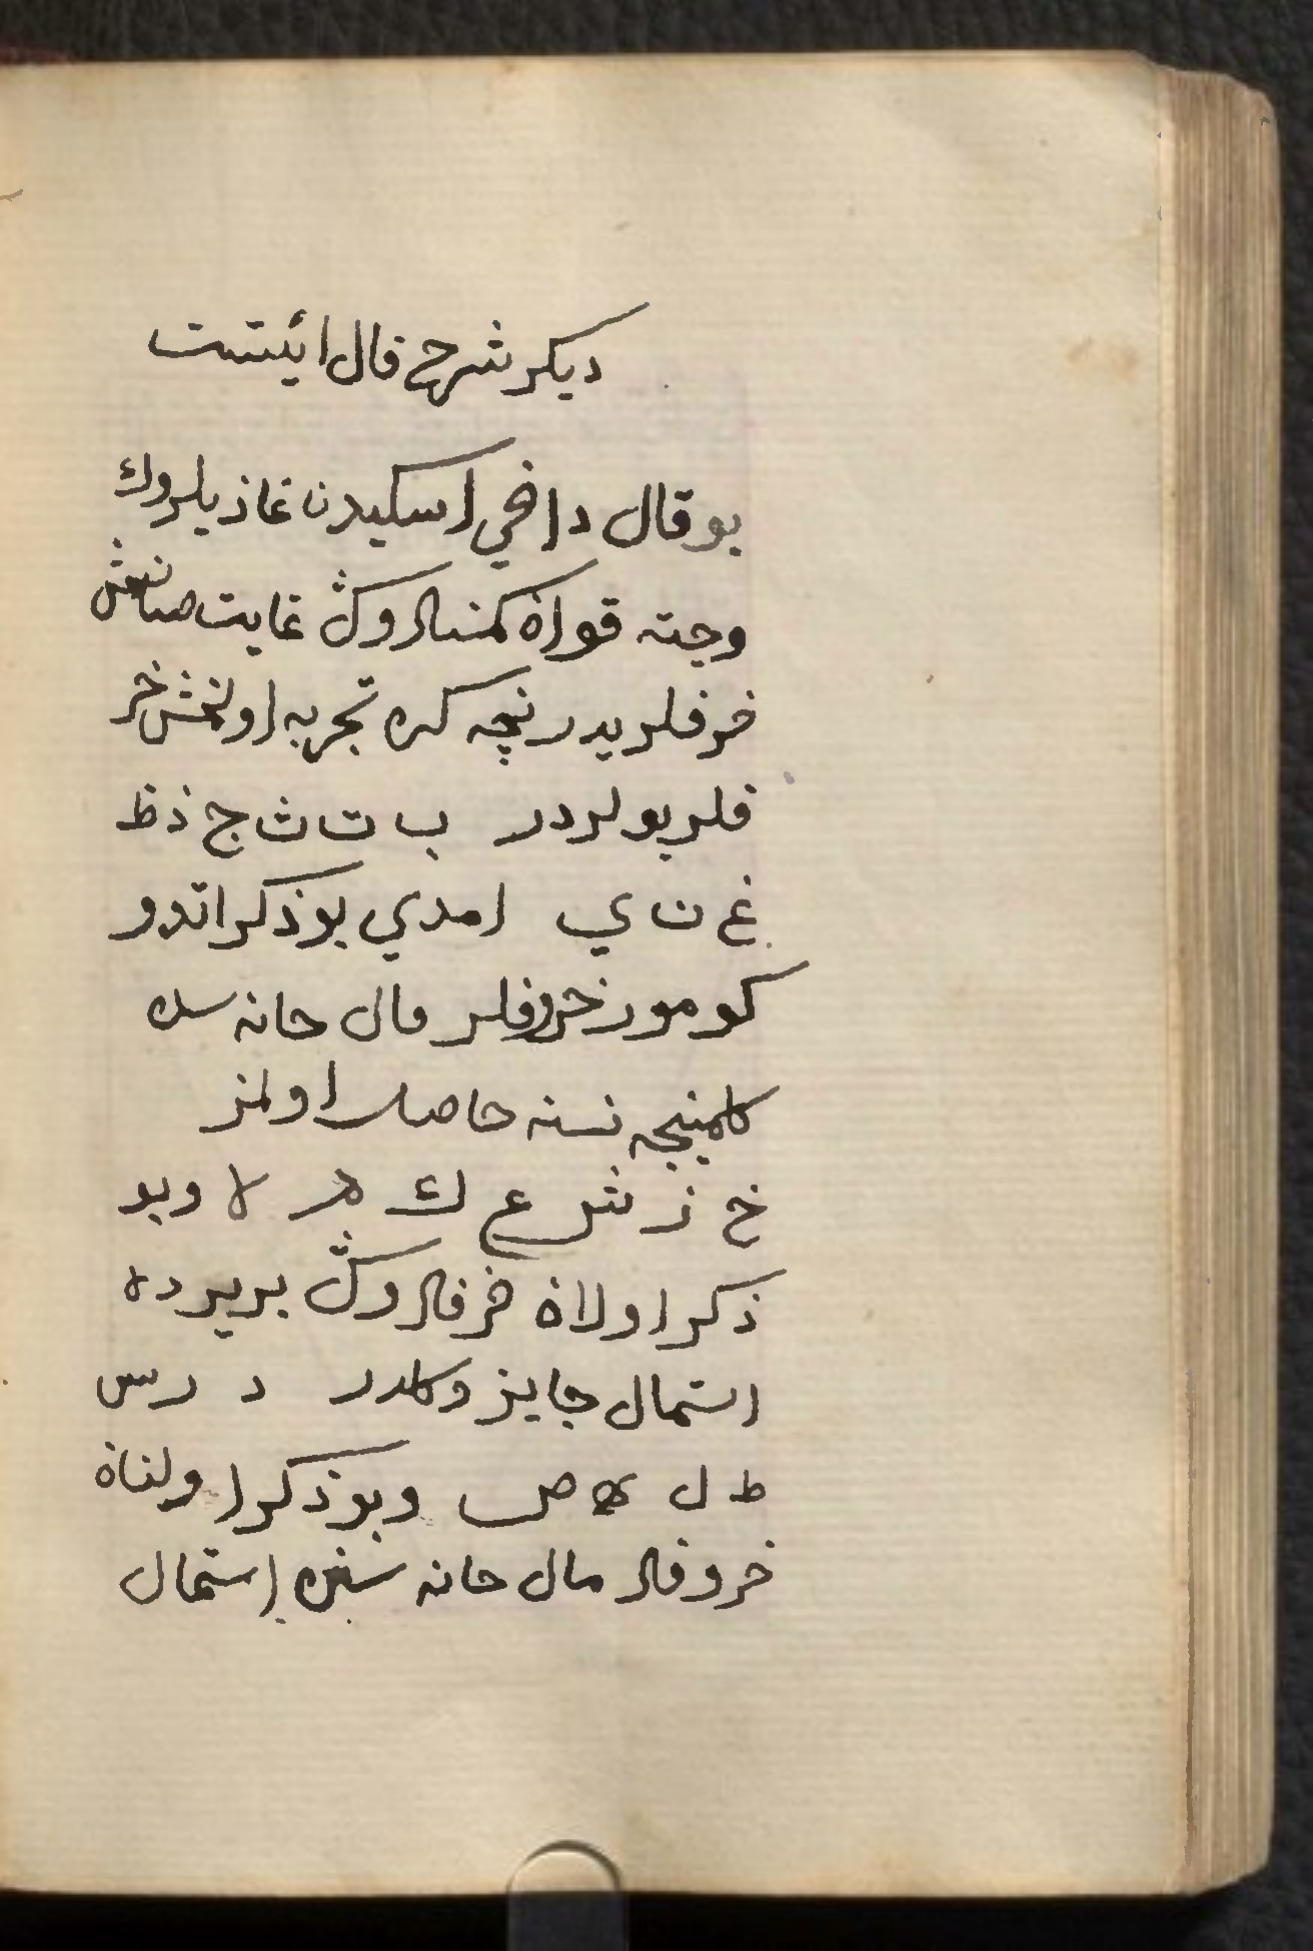 ديكر شرح فال ائيتست
بو قال داخي اسكيدن غاذيلروك
وجته قواة كمنسالروڭ غايت صانعش
خرفلريدر نچه كره تجربه اولنمش خر
فلر بولردر ب ت ث ج ذ ظ
غ ن ي امدي بو ذكر اتدو
كومورخروفلر مال حانه سده
كلمينجه نسنه حاصل اولمز
خ ز ش ع ك هر لا وبو
ذكر اولاة خرفلروڭ بر بر ده
استمال جايز وكلدر د ر س
ط ل ه ص وبو ذكر اولناة
خروفلر مال حانه سنده استمال